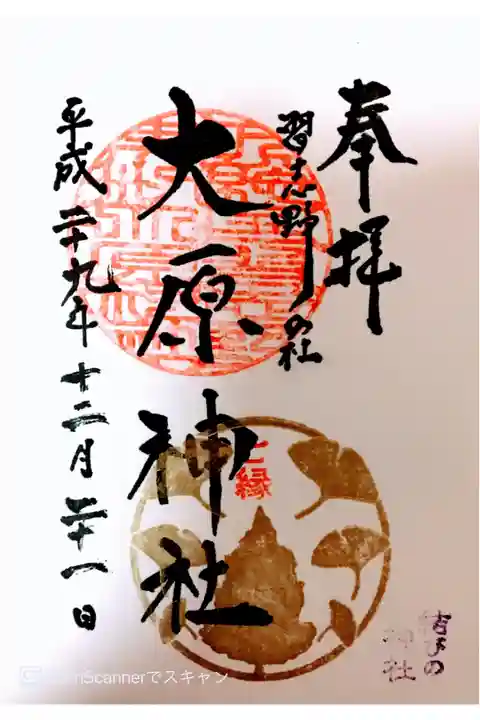 奉拝
習志野の社
大原神社
平成二十九年十二月二十一日
結びの
神社
CamScannerでスキャン